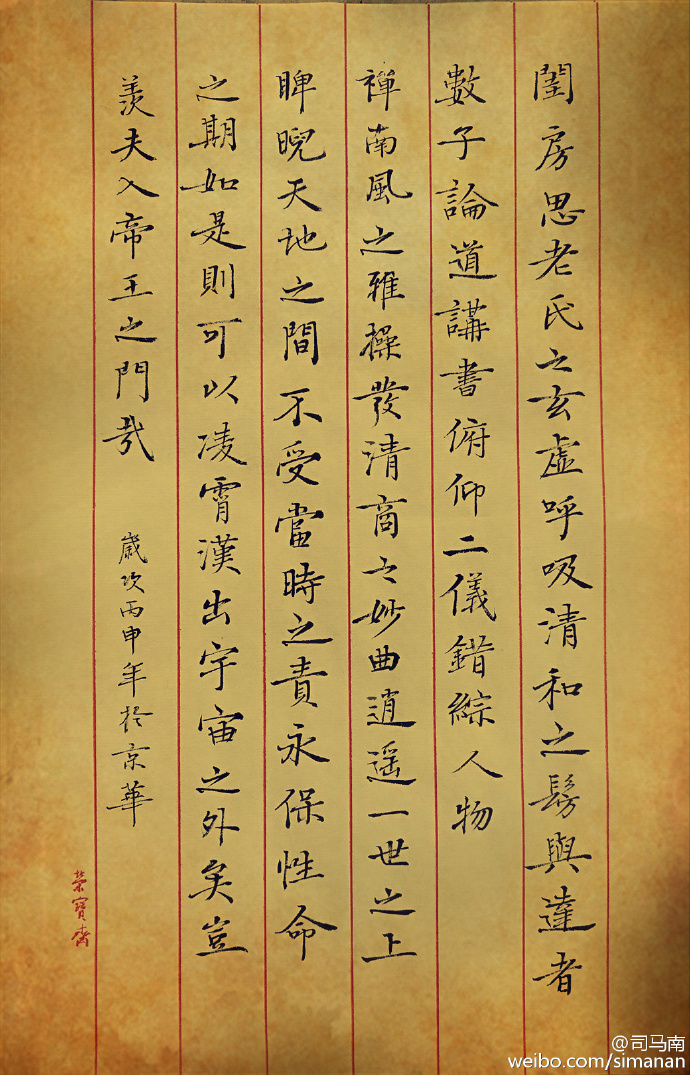 閨房思老氏之玄虛呼吸清和之髣與達者
數子論道講書俯仰二儀錯綜人物
禪南風之雅操發清商之妙曲逍遥一世之上
睥睨天地之間不受當時之責永保性命
之期如是則可以凌霄漢出宇宙之外矣豈
羨夫入帝王之門哉
歲次丙申年於京華
榮寶齋
@司马南
weibo.com/simanan